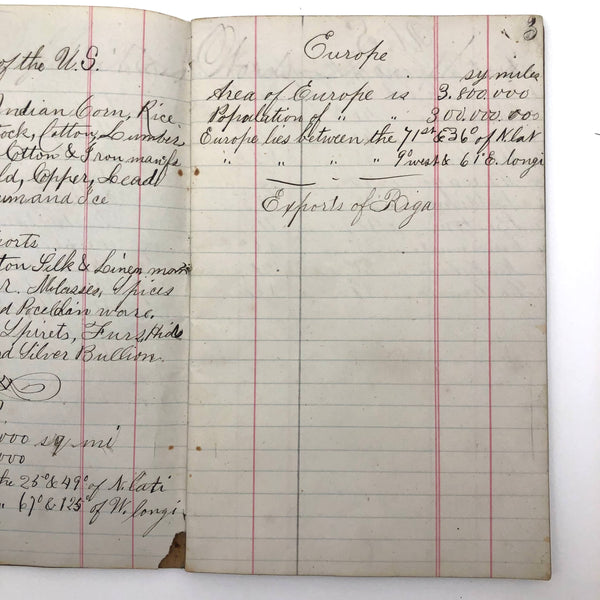 of the U.S.
Indian Corn, Rice
ock, Cotton, Lumber
Cotton & Iron manfs
ld, Copper, Lead
and Ice
orts
ton Silk & Linen
r. Molasses, Spices
d Porcelain ware,
Spirets, Furs, Hids
d Silver Bullion.
000 sq mi
000
the 25° & 49° of N. lati
" 67° & 125° of W. longi
3
Europe
sq miles
Area of Europe is 3.800.000
Population of " " 300.000.000
Europe lies between the 71st & 36° of N. lat
" " " " 9° west & 61° E. longi
Exports of Riga